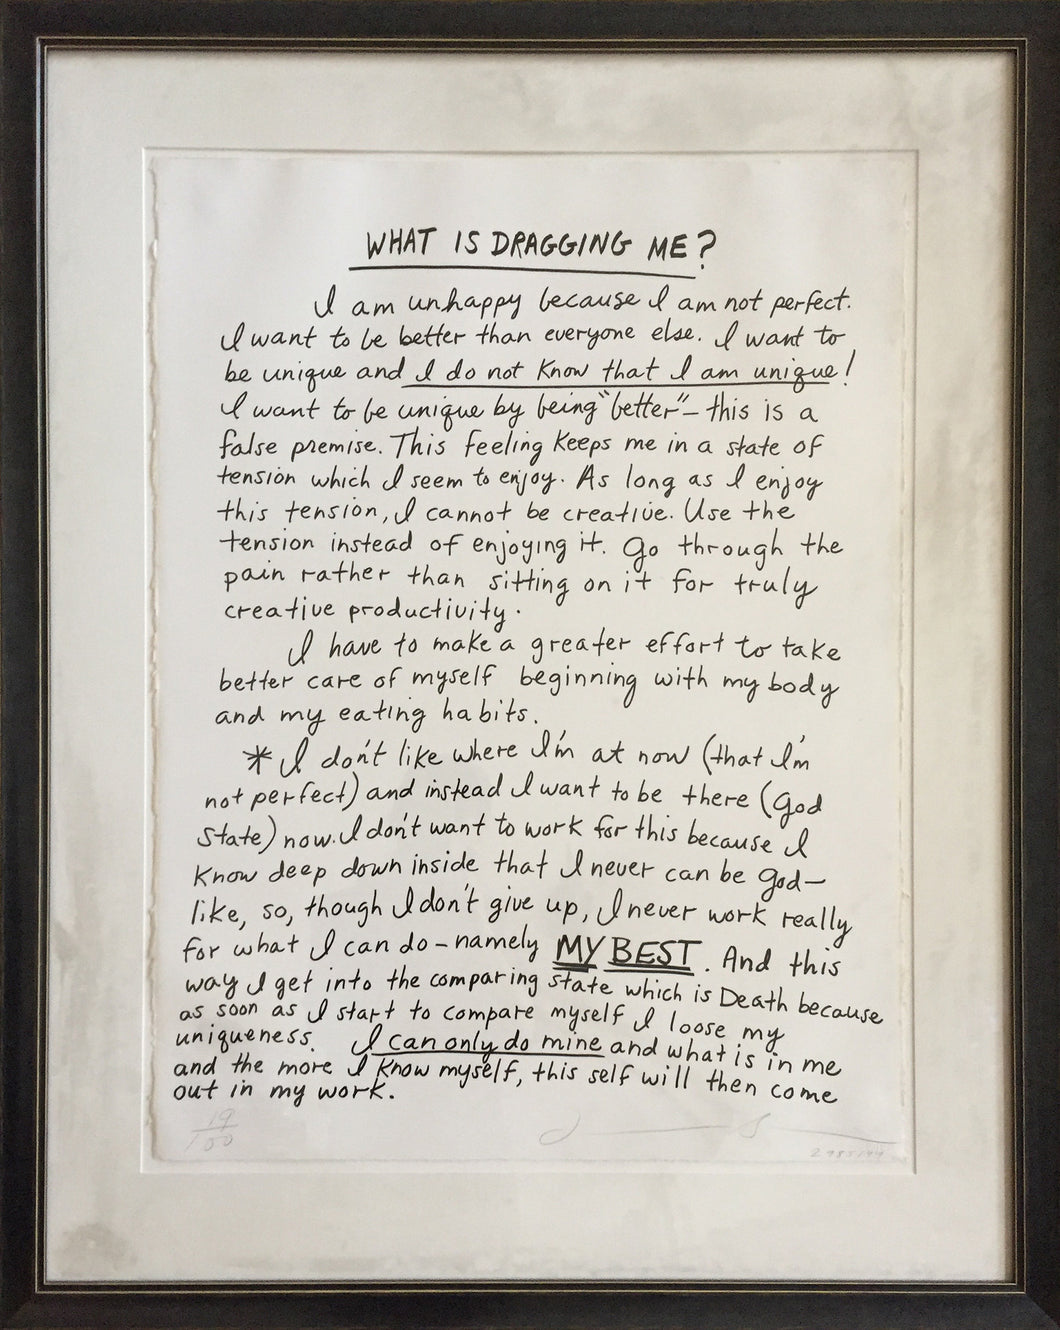 WHAT IS DRAGGING ME?
I am unhappy because I am not perfect.
I want to be better than everyone else. I want to
be unique and I do not know that I am unique!
I want to be unique by being "better" – this is a
false premise. This feeling keeps me in a state of
tension which I seem to enjoy. As long as I enjoy
this tension, I cannot be creative. Use the
tension instead of enjoying it. Go through the
pain rather than sitting on it for truly
creative productivity.
I have to make a greater effort to take
better care of myself beginning with my body
and my eating habits.
* I don't like where I'm at now (that I'm
not perfect) and instead I want to be there (God
State) now. I don't want to work for this because I
know deep down inside that I never can be God–
like, so, though I don't give up, I never work really
for what I can do – namely MY BEST. And this
way I get into the comparing state which is Death because
as soon as I start to compare myself I loose my
uniqueness. I can only do mine and what is in me
and the more I know myself, this self will then come
out in my work.
19/100